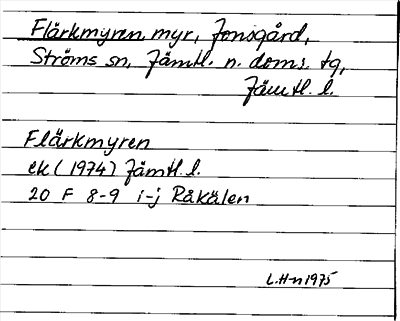 Flärkmyren, myr, Jonsgård,
Ströms sn, Jämtl. n. doms. tg,
Jämtl. l.
Flärkmyren
ek (1974) Jämtl. l.
20 F 8-9 i-j Råkälen
L.H-n 1975